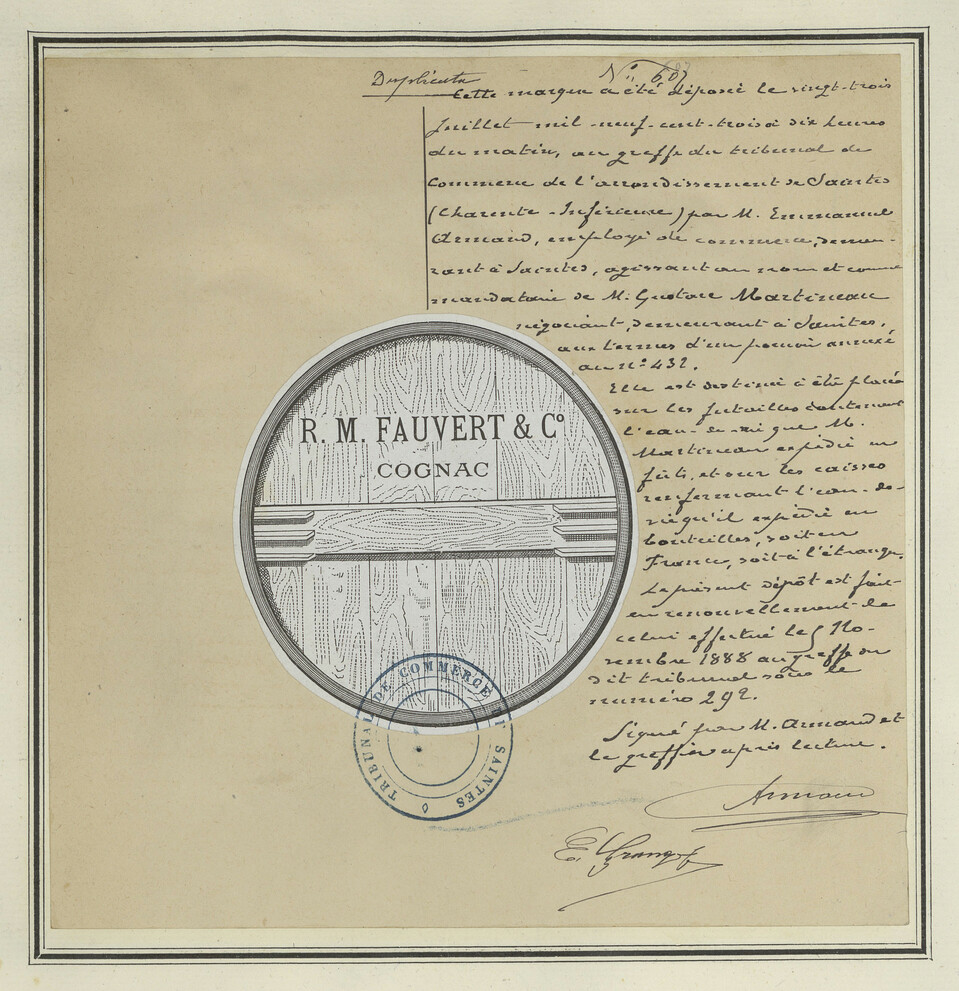 Duplicata
Nº 607
Cette marque a été déposée le vingt-trois
Juillet mil-neuf-cent-trois à dix heures
du matin, au greffe du tribunal de
commerce de l'arrondissement de Saintes
(Charente-Inférieure) par M. Emmanuel
Armand, employé de commerce, demeu-
rant à Saintes, agissant au nom et comme
mandataire de M. Gustave Martineau
négociant, demeurant à Saintes,
aux termes d'un pouvoir annexé
au nº 432.
Elle est destinée à être placée
sur les futailles contenant
l'eau-de-vie que M.
Martineau expédie en
fûts, et sur les caisses
renfermant l'eau-de-
vie qu'il expédie en
bouteilles, soit en
France, soit à l'étranger.
Le présent dépôt est fait
en renouvellement de
celui effectué le 5 No-
vembre 1888 au greffe du
dit tribunal sous le
numéro 292.
Signé par M. Armand et
le greffier après lecture.
Armand
R. M. FAUVERT & Cº
COGNAC
TRIBUNAL DE COMMERCE SAINTES